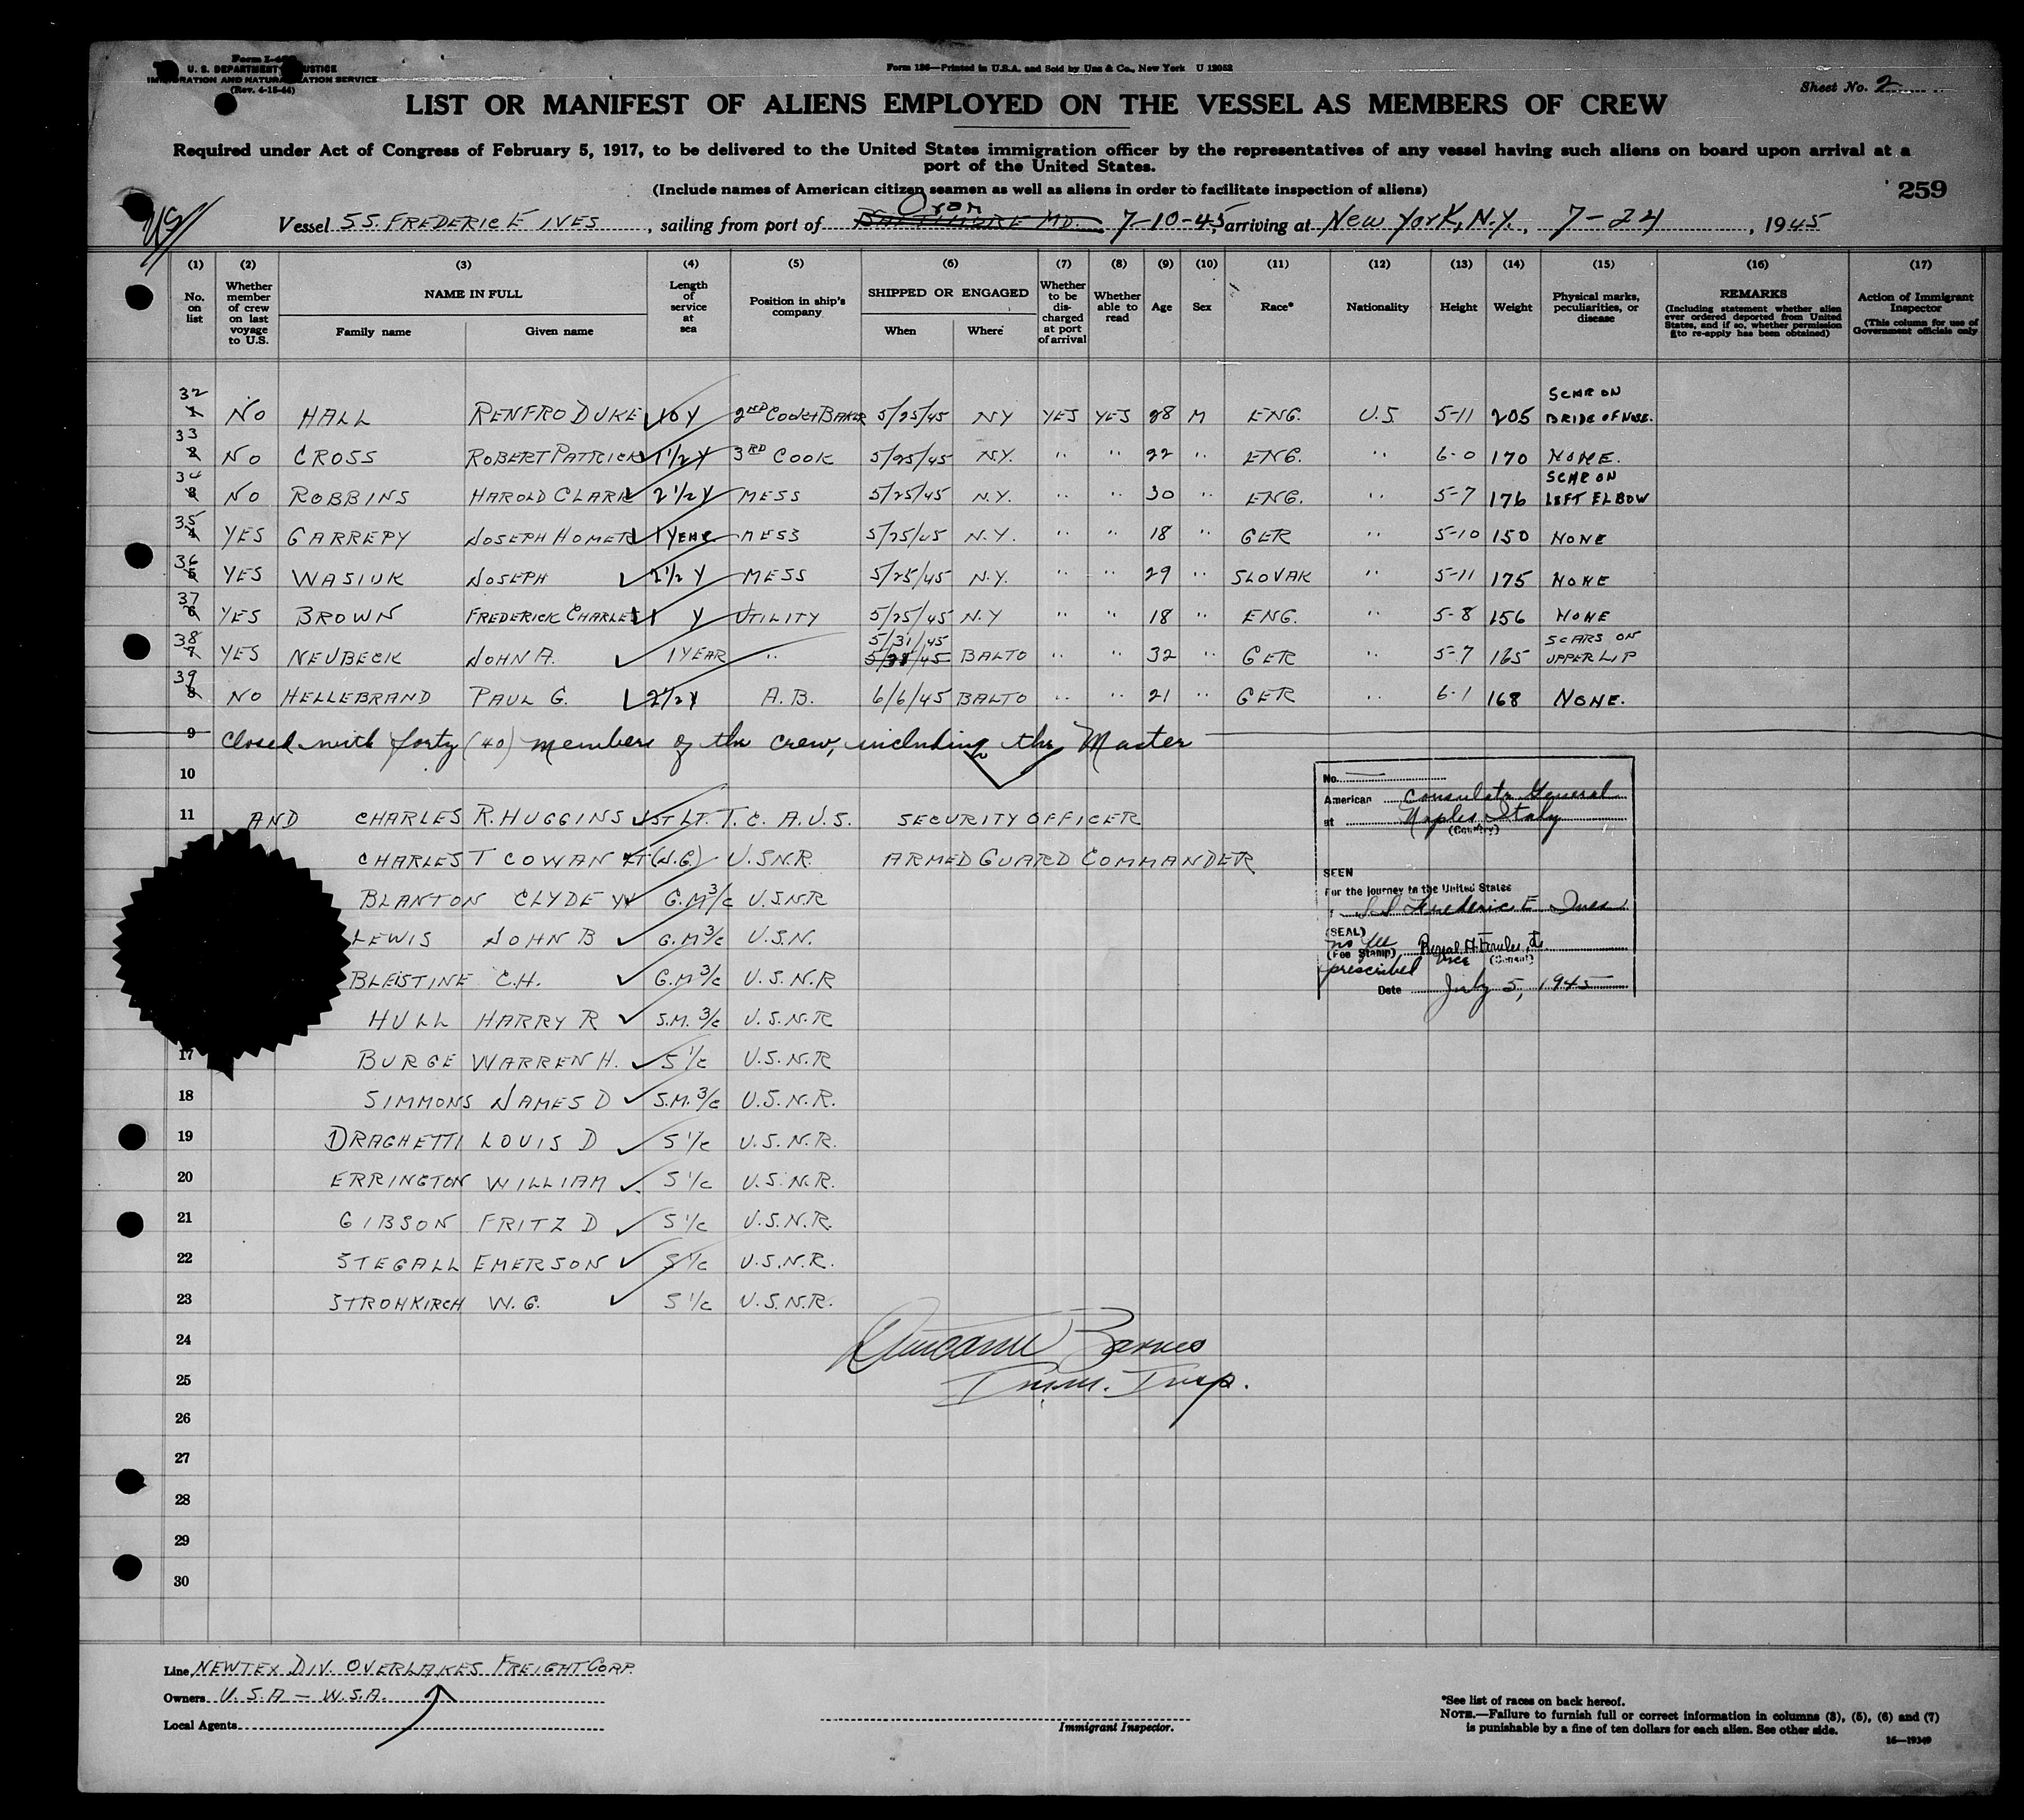 Form I-480
U. S. DEPARTMENT OF JUSTICE
IMMIGRATION AND NATURALIZATION SERVICE
(Rev. 4-15-44)
Form 136—Printed in U.S.A. and Sold by Unz & Co., New York U 12052
Sheet No. 2
LIST OR MANIFEST OF ALIENS EMPLOYED ON THE VESSEL AS MEMBERS OF CREW
Required under Act of Congress of February 5, 1917, to be delivered to the United States immigration officer by the representatives of any vessel having such aliens on board upon arrival at a
port of the United States.
(Include names of American citizen seamen as well as aliens in order to facilitate inspection of aliens)
259
Oran
Vessel SS. FREDERIC E IVES, sailing from port of BALTIMORE MD. 7-10-45, arriving at New York, N.Y., 7-24, 1945
(1) (2) (3) (4) (5) (6) (7) (8) (9) (10) (11) (12) (13) (14) (15) (16) (17)
No. on list
Whether member of crew on last voyage to U.S.
NAME IN FULL
Family name Given name
Length of service at sea
Position in ship's company
SHIPPED OR ENGAGED
When Where
Whether to be discharged at port of arrival
Whether able to read
Age
Sex
Race*
Nationality
Height
Weight
Physical marks, peculiarities, or disease
REMARKS
(Including statement whether alien ever ordered deported from United States, and if so, whether permission to re-apply has been obtained)
Action of Immigrant Inspector
(This column for use of Government officials only
32 1 NO HALL RENFRO DUKE 10 Y 2ND COOK & BAKER 5/25/45 NY YES YES 28 M ENG. U.S 5-11 205 SCAR ON BRIDE OF NOSE.
33 2 NO CROSS ROBERT PATRICK 1 1/2 Y 3RD COOK 5/25/45 N.Y. " " 22 " ENG. " 6-0 170 NONE.
34 3 NO ROBBINS HAROLD CLARK 2 1/2 Y MESS 5/25/45 N.Y. " " 30 " ENG. " 5-7 176 SCAR ON LEFT ELBOW
35 4 YES GARREPY JOSEPH HOMER 1 YEAR MESS 5/25/45 N.Y. " " 18 " GER " 5-10 150 NONE
36 5 YES WASIUK JOSEPH 2 1/2 Y MESS 5/25/45 N.Y. " " 29 " SLOVAK " 5-11 175 NONE
37 6 YES BROWN FREDERICK CHARLES 1 Y UTILITY 5/25/45 N.Y " " 18 " ENG. " 5-8 156 NONE
38 7 YES NEUBECK JOHN A. 1 YEAR " 5/31/45 5/28/45 BALTO " " 32 " GER " 5-7 165 SCARS ON UPPER LIP
39 8 NO HELLEBRAND PAUL G. 2 1/2 Y A.B. 6/6/45 BALTO " " 21 " GER " 6-1 168 NONE.
9 Closed with forty (40) members of the crew, including the Master
10
11 AND CHARLES R. HUGGINS 1ST LT. T.C. A.U.S. SECURITY OFFICER
CHARLES T COWAN LT (J.G.) U.S.N.R. ARMED GUARD COMMANDER
BLANTON CLYDE W G.M 3/c U.S.N.R
LEWIS JOHN B G.M 3/c U.S.N.
BLEISTINE C.H. G.M 3/c U.S.N.R
HULL HARRY R S.M. 3/c U.S.N.R
17 BURGE WARREN H. S 1/c U.S.N.R
18 SIMMONS JAMES D S.M. 3/c U.S.N.R.
19 DRAGHETTI LOUIS D S 1/c U.S.N.R.
20 ERRINGTON WILLIAM S 1/c U.S.N.R.
21 GIBSON FRITZ D S 1/c U.S.N.R.
22 STEGALL EMERSON S 1/c U.S.N.R.
23 STROHKIRCH W.G. S 1/c U.S.N.R.
24
25
26
27
28
29
30
No.
American Consulate General
at Naples Italy
(Country)
SEEN
For the journey to the United States
S.S Frederic E Ives
(SEAL)
no fee
(Fee Stamp)
prescribed
Vice (Consul)
Date July 5, 1945
Barnes
Imm. Insp.
Line NEWTEX DIV. OVERLAKES FREIGHT CORP.
Owners U.S.A — W.S.A.
Local Agents
Immigrant Inspector.
*See list of races on back hereof.
NOTE.—Failure to furnish full or correct information in columns (3), (5), (6) and (7)
is punishable by a fine of ten dollars for each alien. See other side.
16—19349